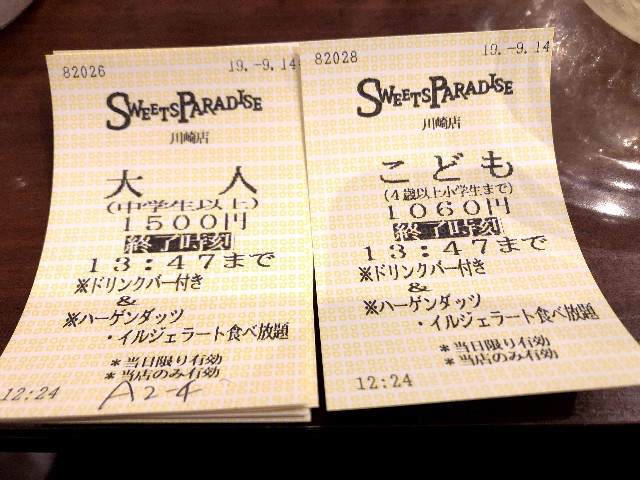 82026 19.-9.14
SWEETSPARADISE
川崎店
大 人
(中学生以上)
1500円
終了時刻
13:47まで
※ドリンクバー付き
&
※ハーゲンダッツ
・イルジェラート食べ放題
*当日限り有効
*当店のみ有効
12:24 A2-4
82028 19.-9.14
SWEETSPARADISE
川崎店
こども
(4歳以上小学生まで)
1060円
終了時刻
13:47まで
※ドリンクバー付き
&
※ハーゲンダッツ
・イルジェラート食べ放題
*当日限り有効
*当店のみ有効
12:24